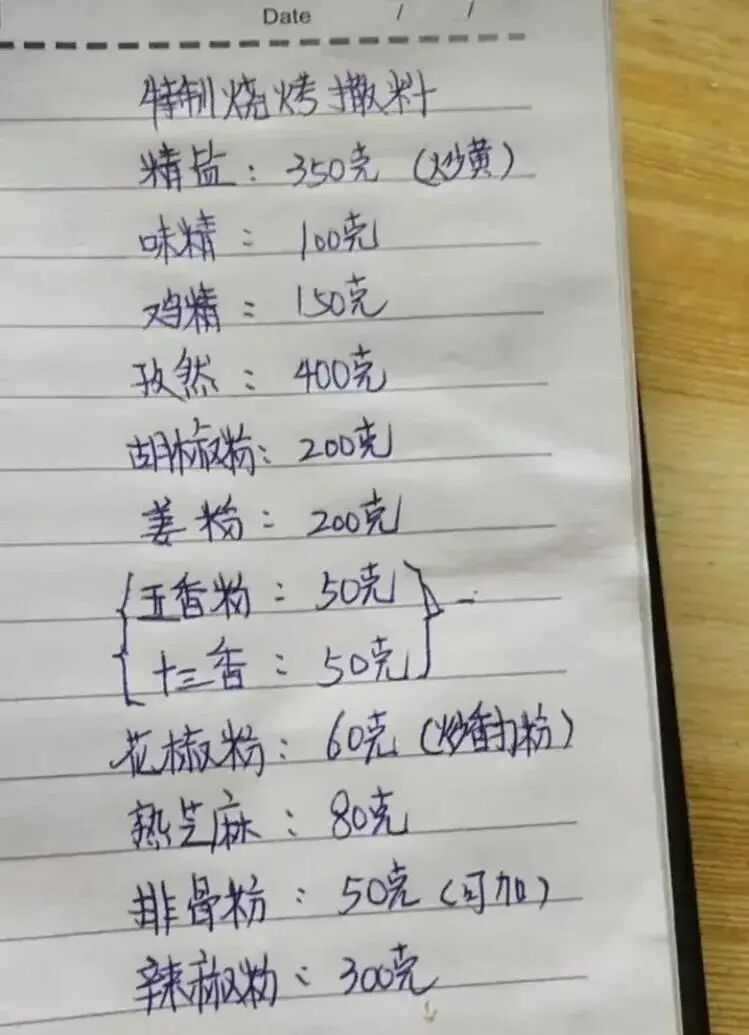 Date / /
特制烧烤撒料
精盐：350克（炒黄）
味精：100克
鸡精：150克
孜然：400克
胡椒粉：200克
姜粉：200克
五香粉：50克
十三香：50克
花椒粉：60克（炒香打粉）
熟芝麻：80克
排骨粉：50克（可加）
辣椒粉：300克